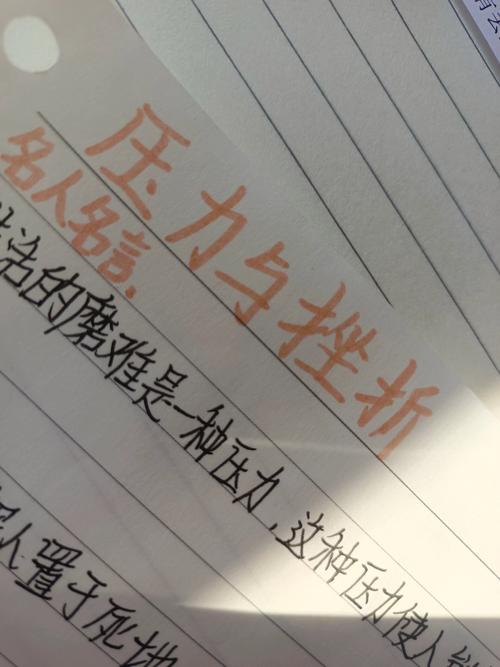 压力与挫折
名人名言.
活的磨难是一种压力,这种压力使人
人置于死地